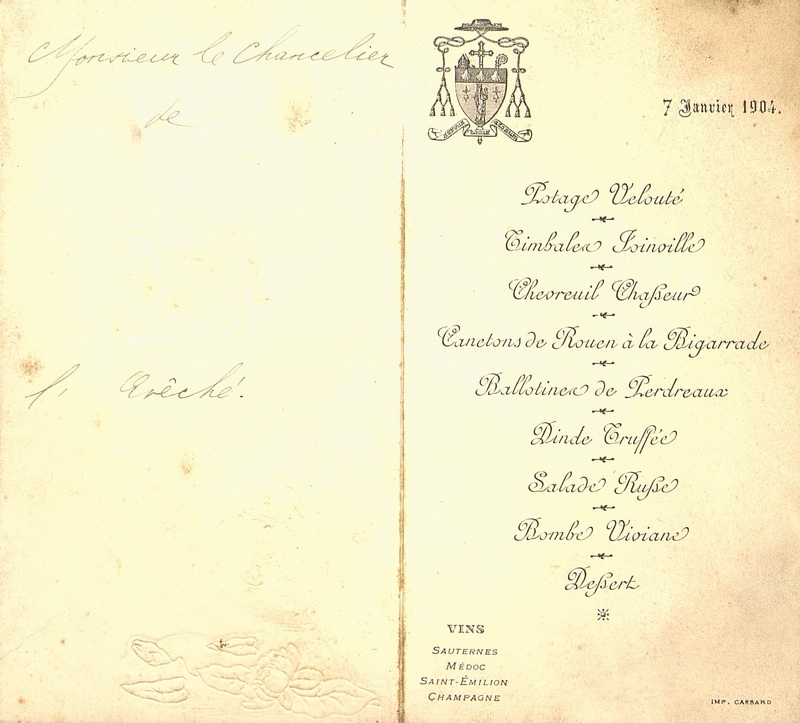 Monsieur le Chancelier
de
l'Evêché.
7 Janvier 1904.
Potage Velouté
Timbales Joinville
Chevreuil Chasseur
Canetons de Rouen à la Bigarrade
Ballotines de Perdreaux
Dinde Truffée
Salade Russe
Bombe Viviane
Dessert
VINS
SAUTERNES
MÉDOC
SAINT-ÉMILION
CHAMPAGNE
IMP. CASSARD